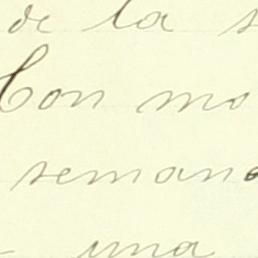 de la s
Con mo
semana
una